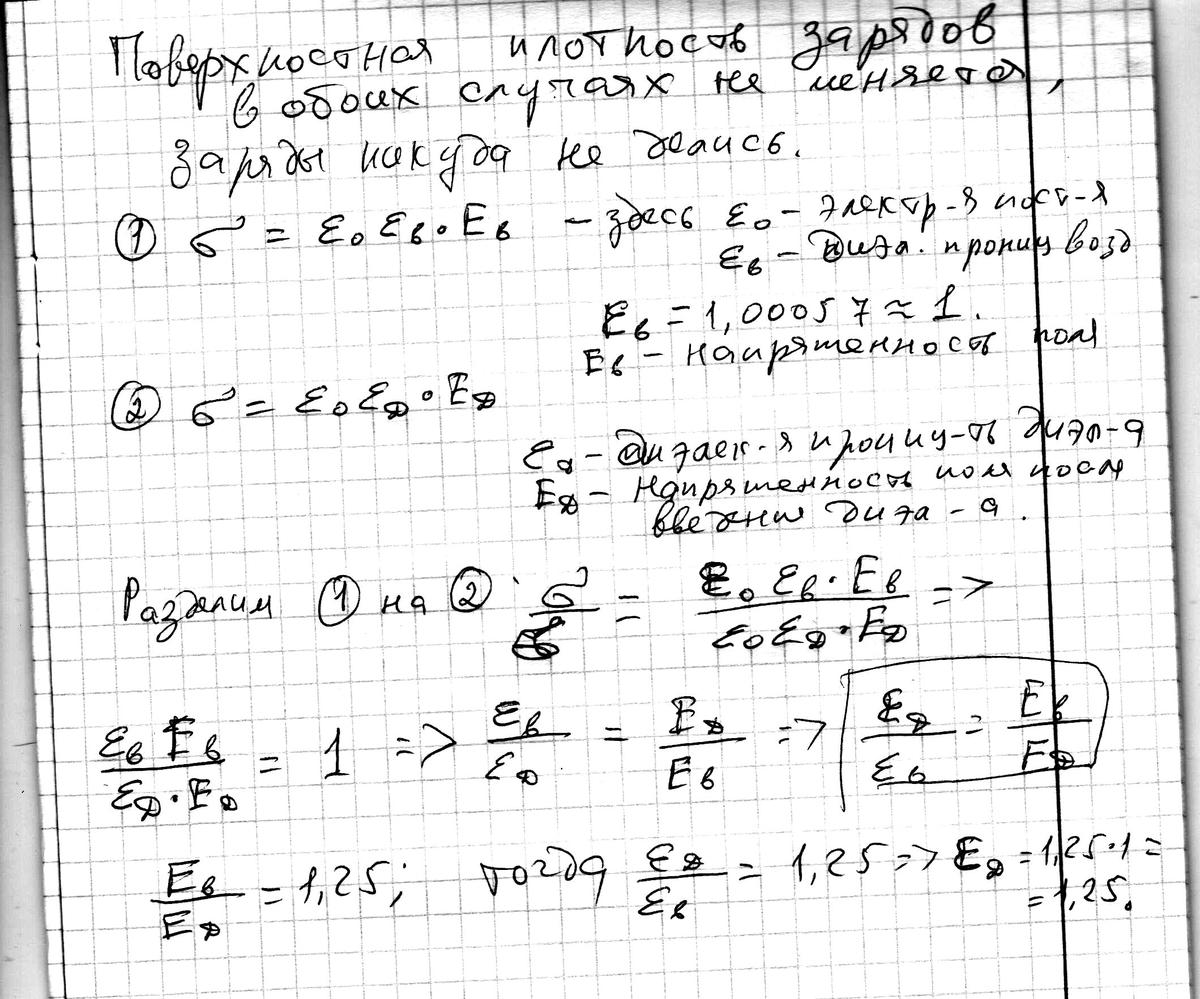 Поверхностная плотность зарядов
в обоих случаях не меняется,
заряды никуда не делись.
① σ = ε₀ εв · Eв – здесь ε₀ – электр-я пост-я
εв – диэл. прониц возд
εв = 1,00057 ≈ 1.
Eв – напряженность поля
② σ = ε₀ εд · Eд
εд – диэлек-я прониц-ть диэл-а
Eд – напряженность поля после
введения диэл-а.
Разделим ① на ② σ/σ = ε₀ εв · Eв / ε₀ εд · Eд =>
εв Eв / εд · Eд = 1 => εв / εд = Eд / Eв => εд / εв = Eв / Eд
Eв / Eд = 1,25; тогда εд / εв = 1,25 => εд = 1,25·1 =
= 1,25.